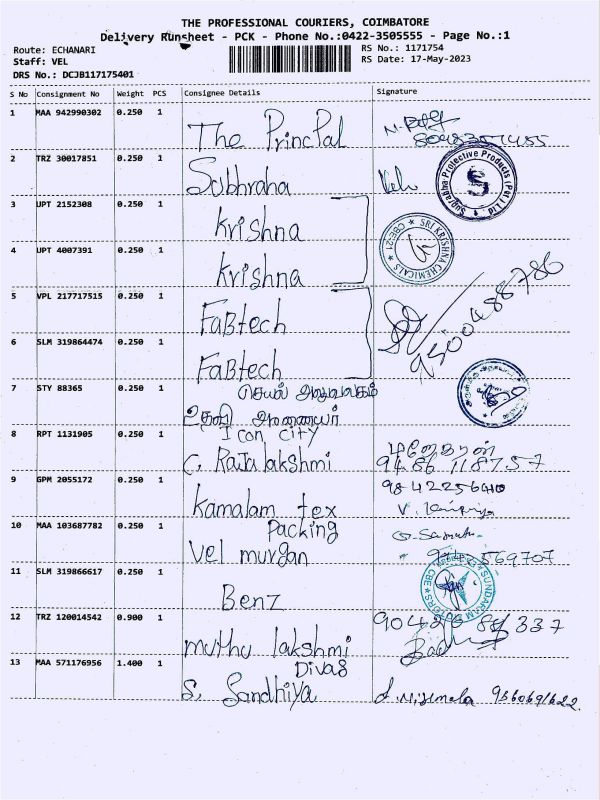 THE PROFESSIONAL COURIERS, COIMBATORE
Delivery Runsheet - PCK - Phone No.:0422-3505555 - Page No.:1
Route: ECHANARI
Staff: VEL
DRS No.: DCJB117175401
RS No.: 1171754
RS Date: 17-May-2023
S No Consignment No Weight PCS Consignee Details Signature
1 MAA 942990302 0.250 1 The PrincPal
2 TRZ 30017851 0.250 1 Subhraha Velu
Sugragha Protective Products (Pvt) Ltd
S
3 UPT 2152308 0.250 1 Krishna
SRI KRISHNA CHEMICALS
CBE-21
4 UPT 4007391 0.250 1 Krishna
5 VPL 217717515 0.250 1 FaBtech 9500488786
6 SLM 319864474 0.250 1 FaBtech
7 STY 88365 0.250 1 செயல் அலுவலகம்
உதவி ஆணையர்
8 RPT 1131905 0.250 1 Icon city
C. Rajalakshmi மனோகரன்
9486118757
9 GPM 2055172 0.250 1 Kamalam tex
10 MAA 103687782 0.250 1 Packing
Vel murgan
11 SLM 319866617 0.250 1 Benz
SUNDARAM MOTORS CBE
12 TRZ 120014542 0.900 1 muthu lakshmi
13 MAA 571176956 1.400 1 Divas
S. Sandhiya